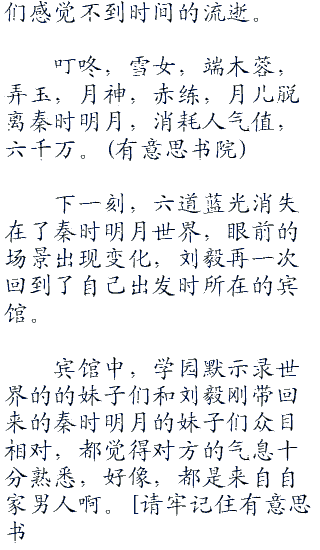 们感觉不到时间的流逝。
叮咚，雪女，端木蓉，
弄玉，月神，赤练，月儿脱
离秦时明月，消耗人气值，
六千万。(有意思书院)
下一刻，六道蓝光消失
在了秦时明月世界，眼前的
场景出现变化，刘毅再一次
回到了自己出发时所在的宾
馆。
宾馆中，学园默示录世
界的的妹子们和刘毅刚带回
来的秦时明月的妹子们众目
相对，都觉得对方的气息十
分熟悉，好像，都是来自自
家男人啊。[请牢记住有意思
书